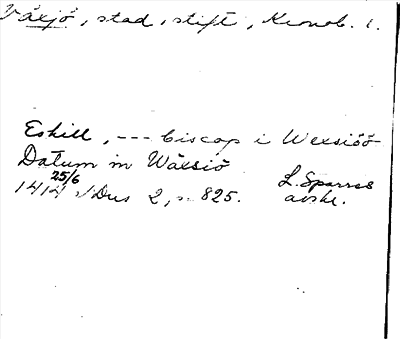 Växjö, stad, stift, Kronob. l.
Eskill, --- biscop i Wexsiöö
Datum in Wäxsiö
25/6
1414 SDns 2, s. 825.
L. Sparres
avskr.